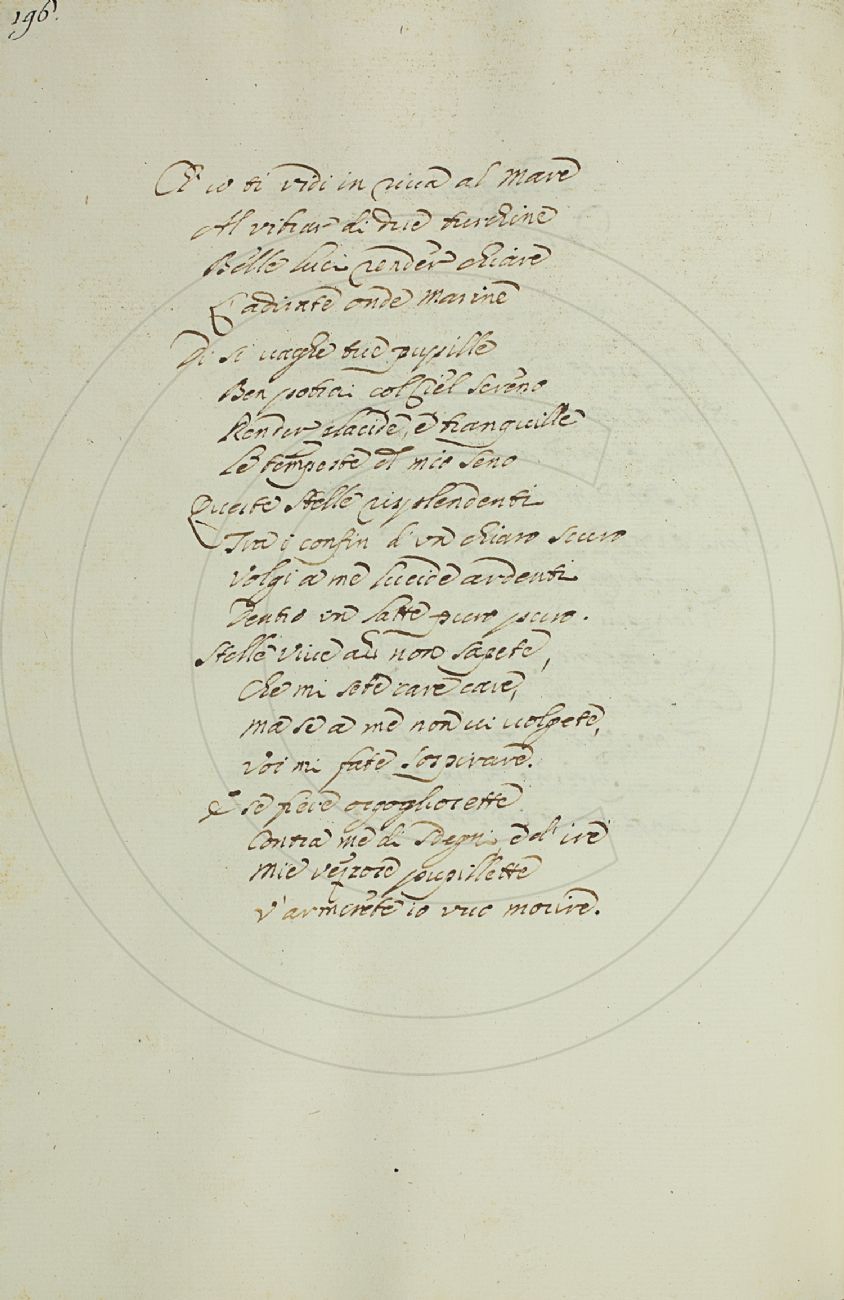 196.
Ch' io ti vidi in riva al Mare
Al vibrar di due turchine
Belle luci render chiare
L'adirate onde Marine
Di si vaghe tue pupille
Ben potrai col Ciel sereno
Render placide, e tranquille
Le tempeste del mio seno
Queste stelle risplendenti
Tra i confin d' un chiaro scuro
Volgi a me lucide ardenti
Dentro un latte puro puro.
Stelle vive ahi non sapete,
Che mi sete care care,
Ma se a me non vi volgete,
Voi mi fate sospirare.
E se fiere orgogliosette
Contra me di sdegni, e d' ire
Mie vezzose pupillette
V' armerete io vuo morire.